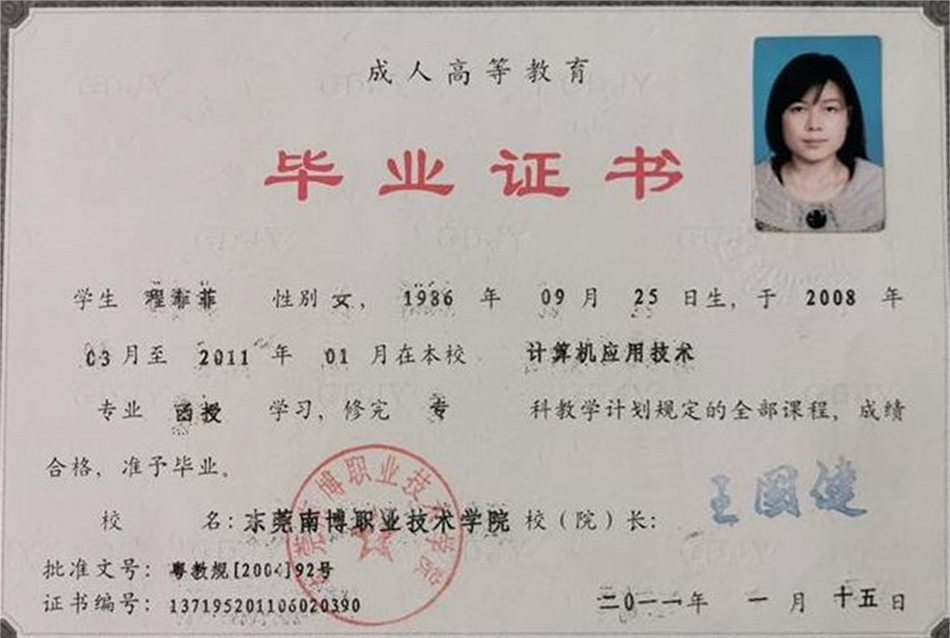 成人高等教育
毕业证书
学生 程菲菲 性别 女，1986 年 09 月 25 日生，于 2008 年
03 月至 2011 年 01 月在本校 计算机应用技术
专业 函授 学习，修完 专 科教学计划规定的全部课程，成绩
合格，准予毕业。
校 名：东莞南博职业技术学院 校（院）长：王国健
批准文号：粤教规[2004]92号
证书编号：137195201106020390
二〇一一年 一 月 十五日